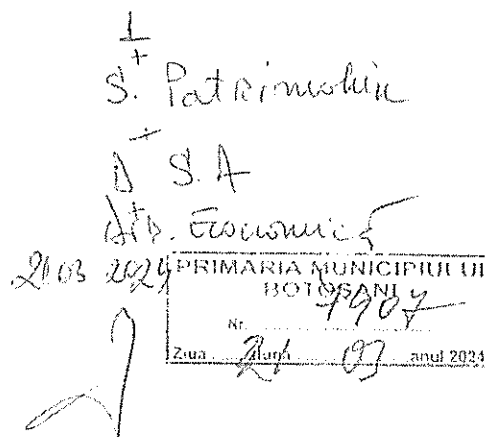 1
S. Patrimoniu
D S.A
Dir. Economică
21 03 2024
PRIMARIA MUNICIPIULUI
BOTOŞANI
Nr. 7907
Ziua 21 luna 03 anul 2024